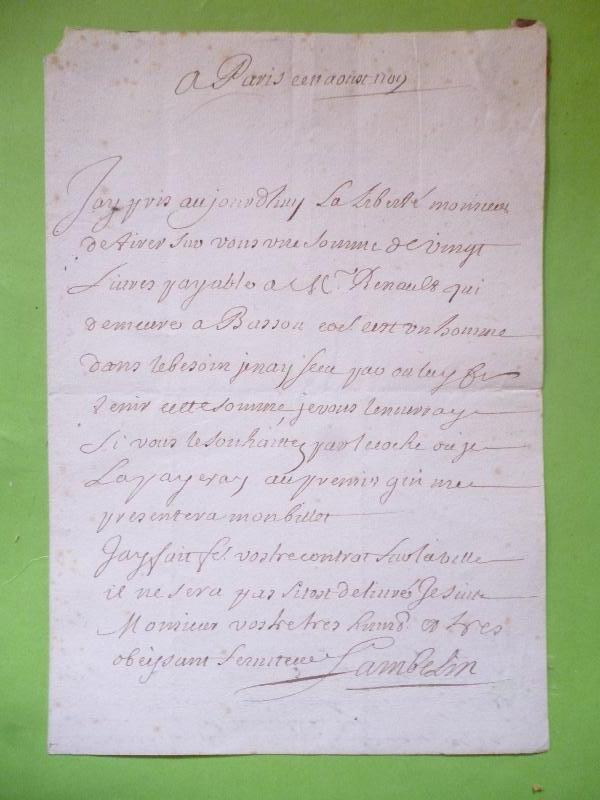 A Paris ce 11 aoust 1709
Jay pris aujourdhuy La liberté monsieur
de tirer sur vous une somme de vingt
Livres payable a Mr. Renault qui
demeure a Bassou c'est un homme
dans le besoin je nay sceu par ou luy fe
tenir cette somme, je vous lenvoiray
si vous le souhaittez par le coche ou je
La payeray au premier qui me
presentera mon billet
Jay fait fe. vostre contrat sur la ville
il ne sera pas sitost delivré Je suis
Monsieur vostre tres humb. et tres
obeissant serviteur Lambelin